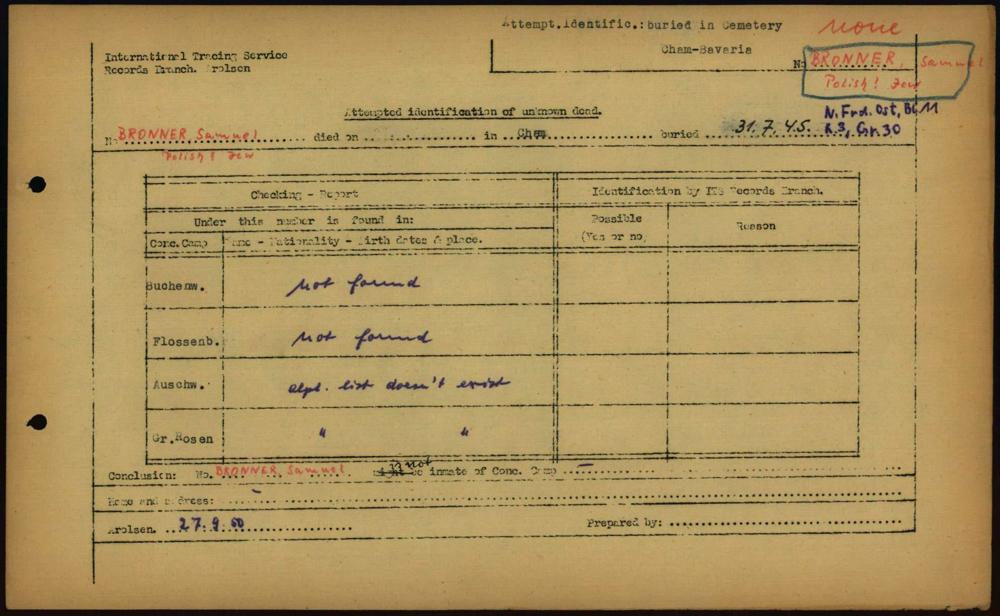 Attempt.Identific.: buried in Cemetery
none
Cham-Bavaria
International Tracing Service
Records Branch. Arolsen
No BRONNER, Samuel
Polish! Jew
Attempted identification of unknown dead.
N. Frd. Ost, Bl 11
R.3, Gr. 30
No BRONNER, Samuel died on in Cham buried 31.7.45.
Polish! Jew
Checking - Report
Identification by ITS Records Branch.
Under this number is found in:
Possible
(Yes or no)
Reason
Conc.Camp
Name - Nationality - Birth dates & place.
Buchenw. not found
Flossenb. not found
Auschw. alph. list doesn't exist
Gr.Rosen " "
Conclusion: No. BRONNER, Samuel is not inmate of Conc. Camp –
Name and address: –
Arolsen. 27.9.50
Prepared by: